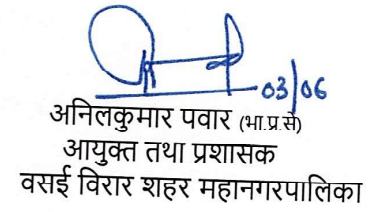 03/06
अनिलकुमार पवार (भा.प्र.से)
आयुक्त तथा प्रशासक
वसई विरार शहर महानगरपालिका